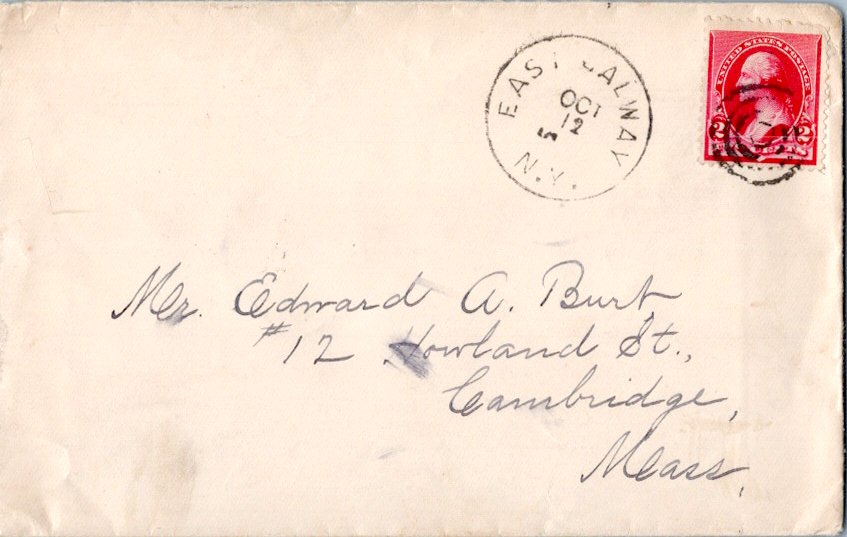 EAST GALWAY
OCT
12
5
N.Y.
UNITED STATES POSTAGE
2 2
Mr. Edward A. Burt,
#12 Howland St.,
Cambridge,
Mass,